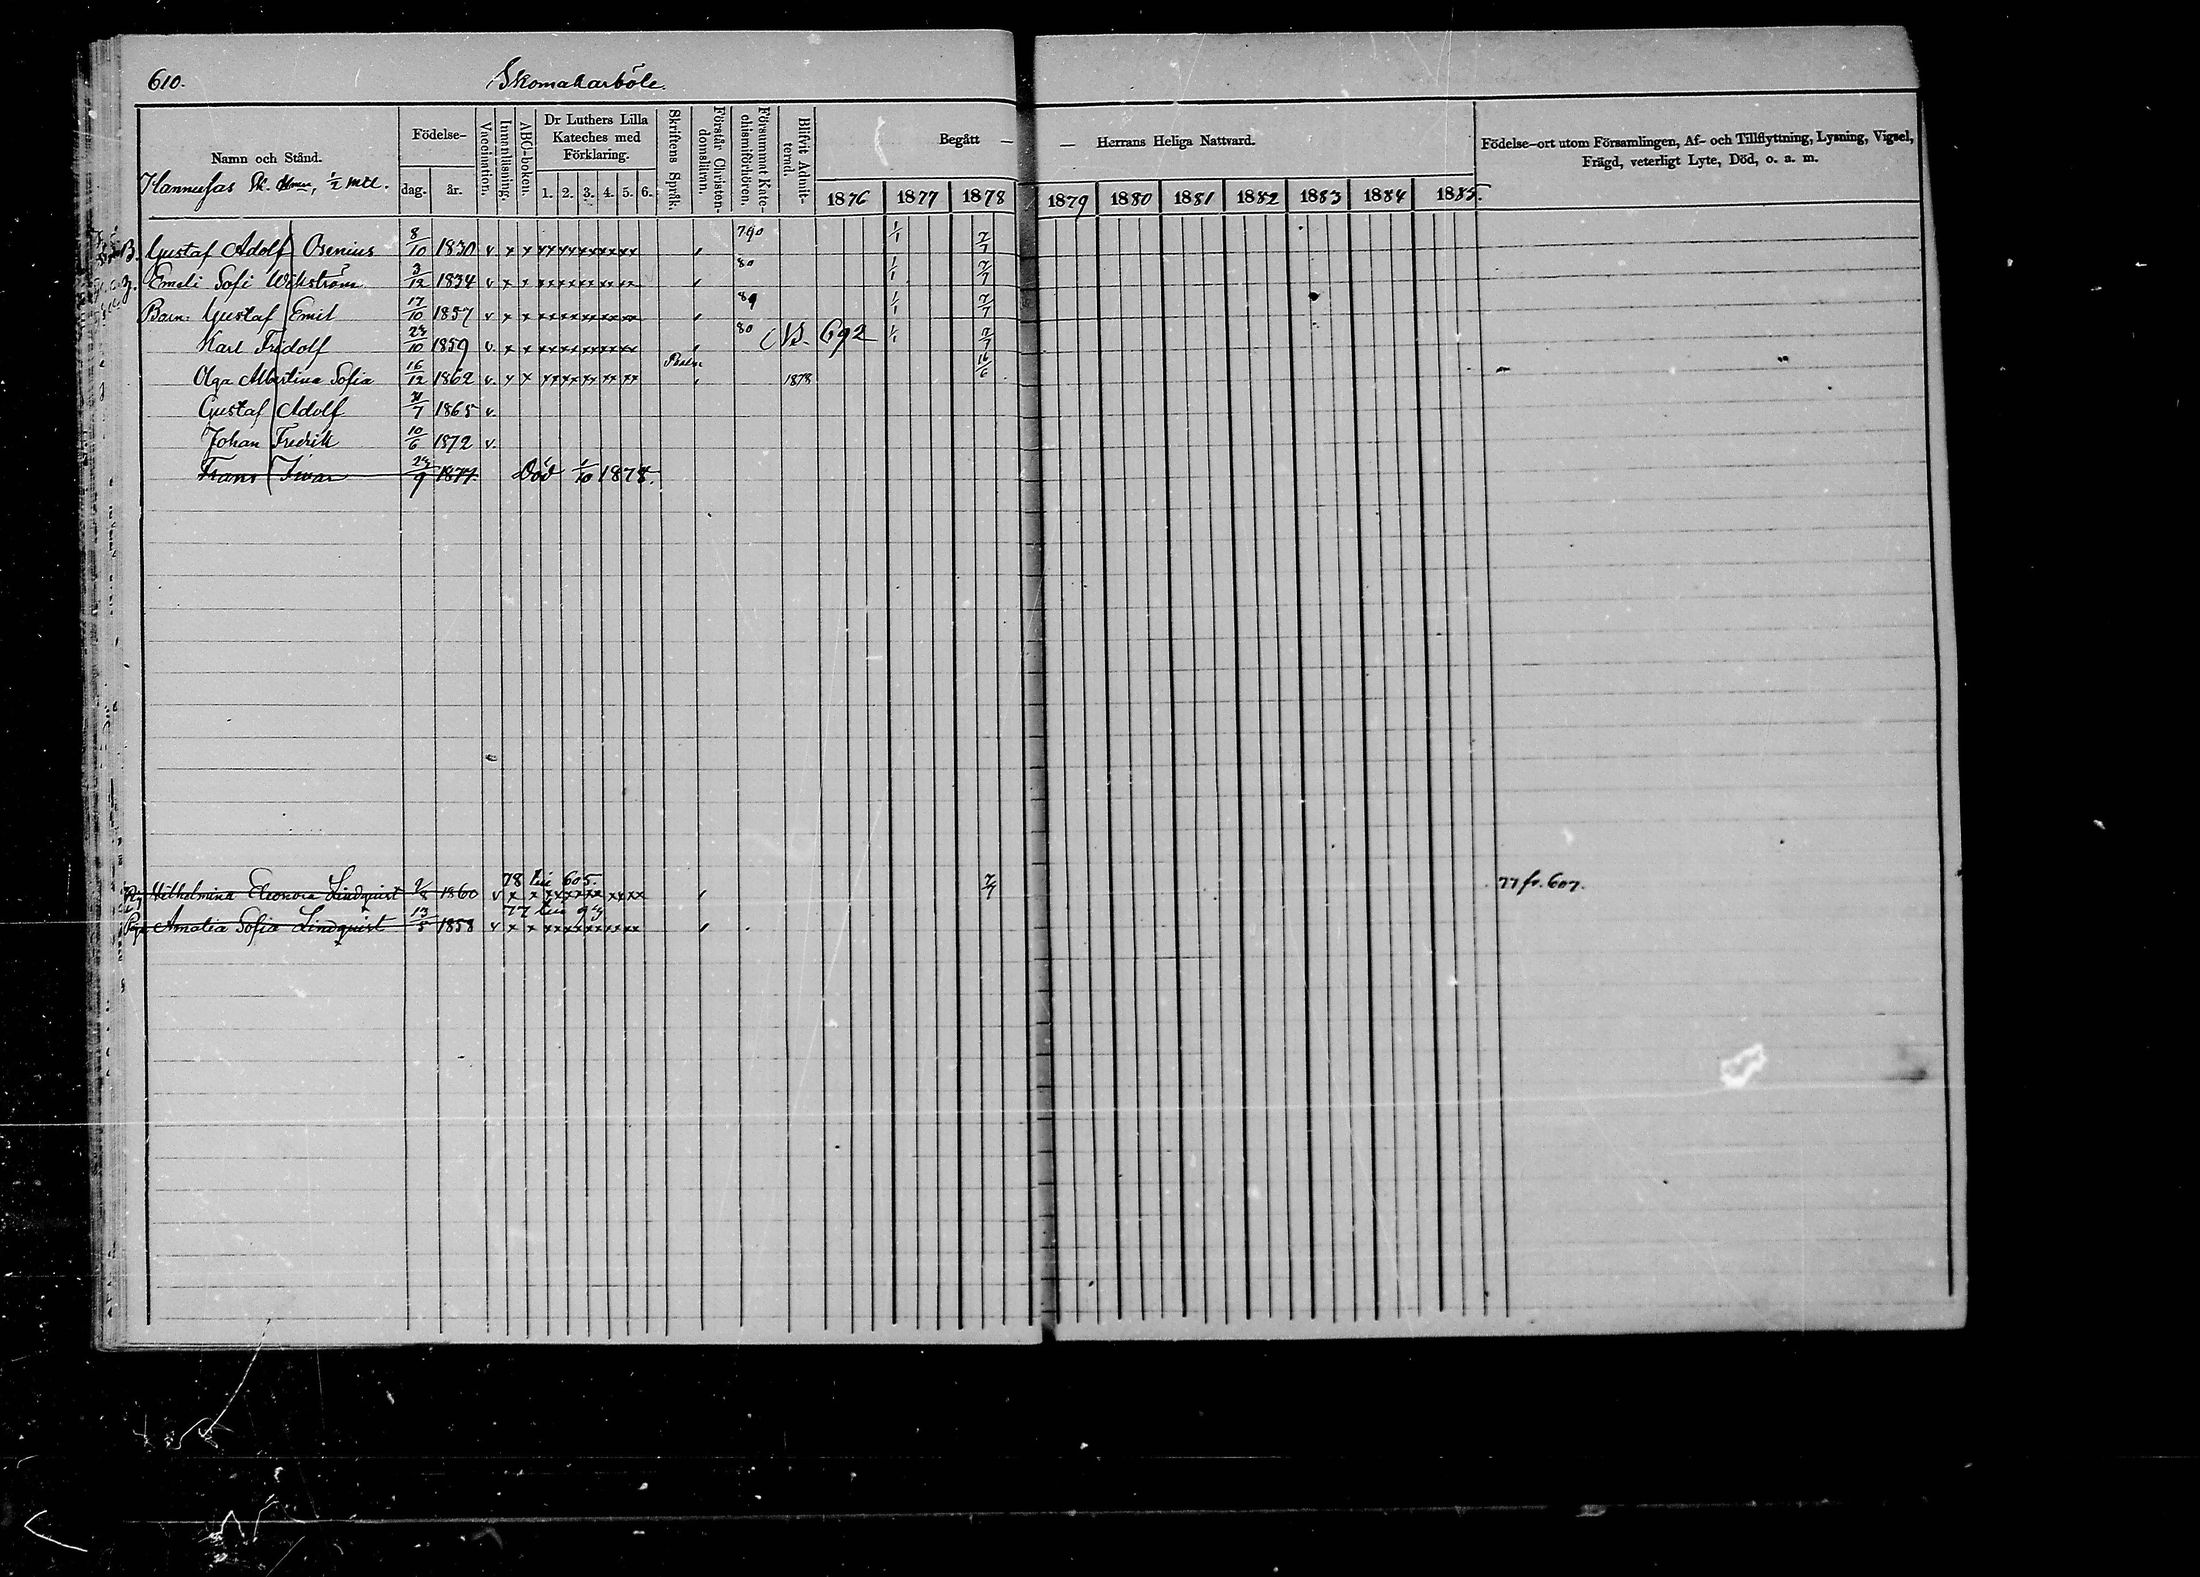 610. Skomakarböle.
Namn och Stånd.
Födelse-
dag. år.
Vaccination.
Innanläsning.
ABC-boken.
Dr Luthers Lilla Kateches med Förklaring.
1. 2. 3. 4. 5. 6.
Skriftens Språk.
Förstår Christendomsläran.
Försummat Katechismiförhören.
Blifvit Admitterad.
Begått — — Herrans Heliga Nattvard.
1876 1877 1878 1879 1880 1881 1882 1883 1884 1885.
Födelse-ort utom Församlingen, Af- och Tillflyttning, Lysning, Vigsel,
Frägd, veterligt Lyte, Död, o. a. m.
Hannusas ½ mtl.
B. Gustaf Adolf Osenius 8/10 1830 v x x xx xx xx xx xx 790 1/1 7/7
Emeli Sofi Wikström 3/12 1834 v x x xx xx xx xx xx 80 1/1 7/7
Barn: Gustaf Emil 17/10 1857 v x x xx xx xx xx xx 89 1/1 7/7
Karl Fridolf 1859 v. x x xx xx xx xx xx 80 692 1/1 7/7
Olga Albertina Sofia 16/12 1862 v. x x xx xx xx xx xx 1878 16/6
Gustaf Adolf 1865 v.
Johan Fredrik 10/6 1872 v.
Frans Ivar 1877 Död 1/10 1878.
78 till 605.
Wilhelmina Eleonora Lindquist 1860 v x x xx xx xx xx xx 7/7 77 fr. 607.
77 till 93
Pig. Amalia Sofia Lindquist 13/5 1858 v x x xx xx xx xx xx